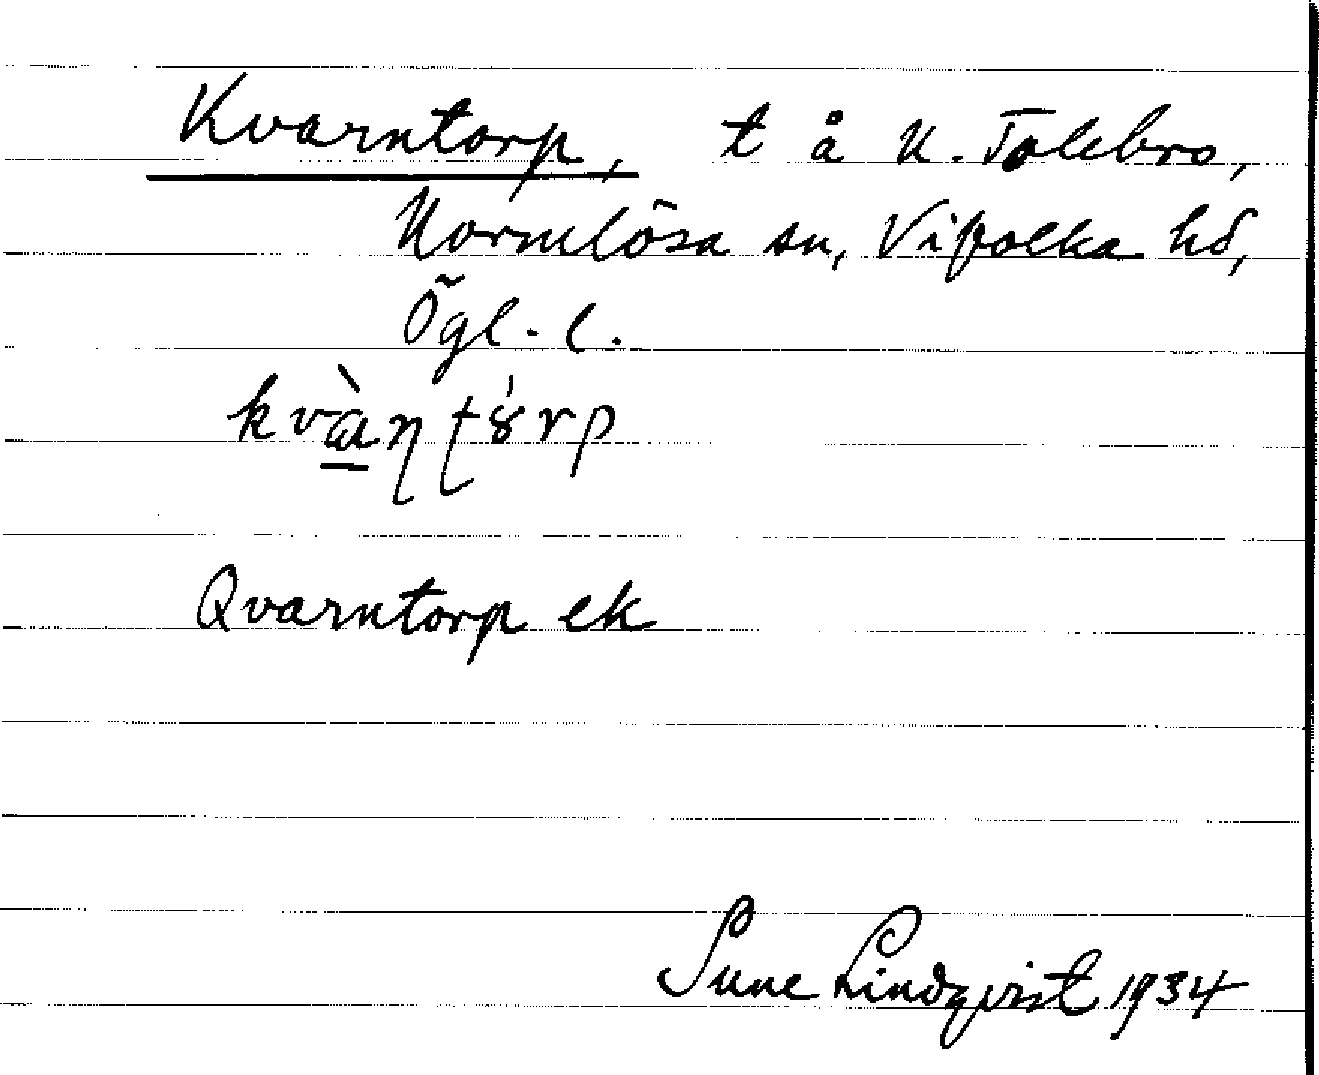 Kvarntorp, t å N. Tolebro,
Normlösa sn, Vifolka hd,
Ögl. l.
Qvarntorp ek
Sune Lindqvist 1934